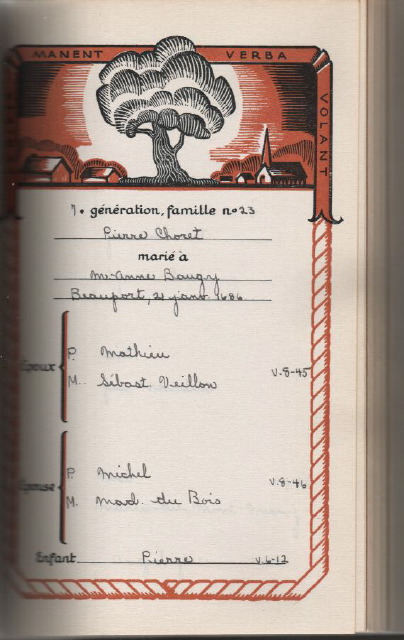 MANENT VERBA
VOLANT
7e génération, famille no 23
Pierre Choret
marié à
M-Anne Baugy
Beauport, 21 janv 1686
Époux
P. Mathieu
M. Sébast Veillon
V.8-45
Épouse
P. Michel
M. Mad. du Bois
V.8-46
Enfant Pierre V.6-12